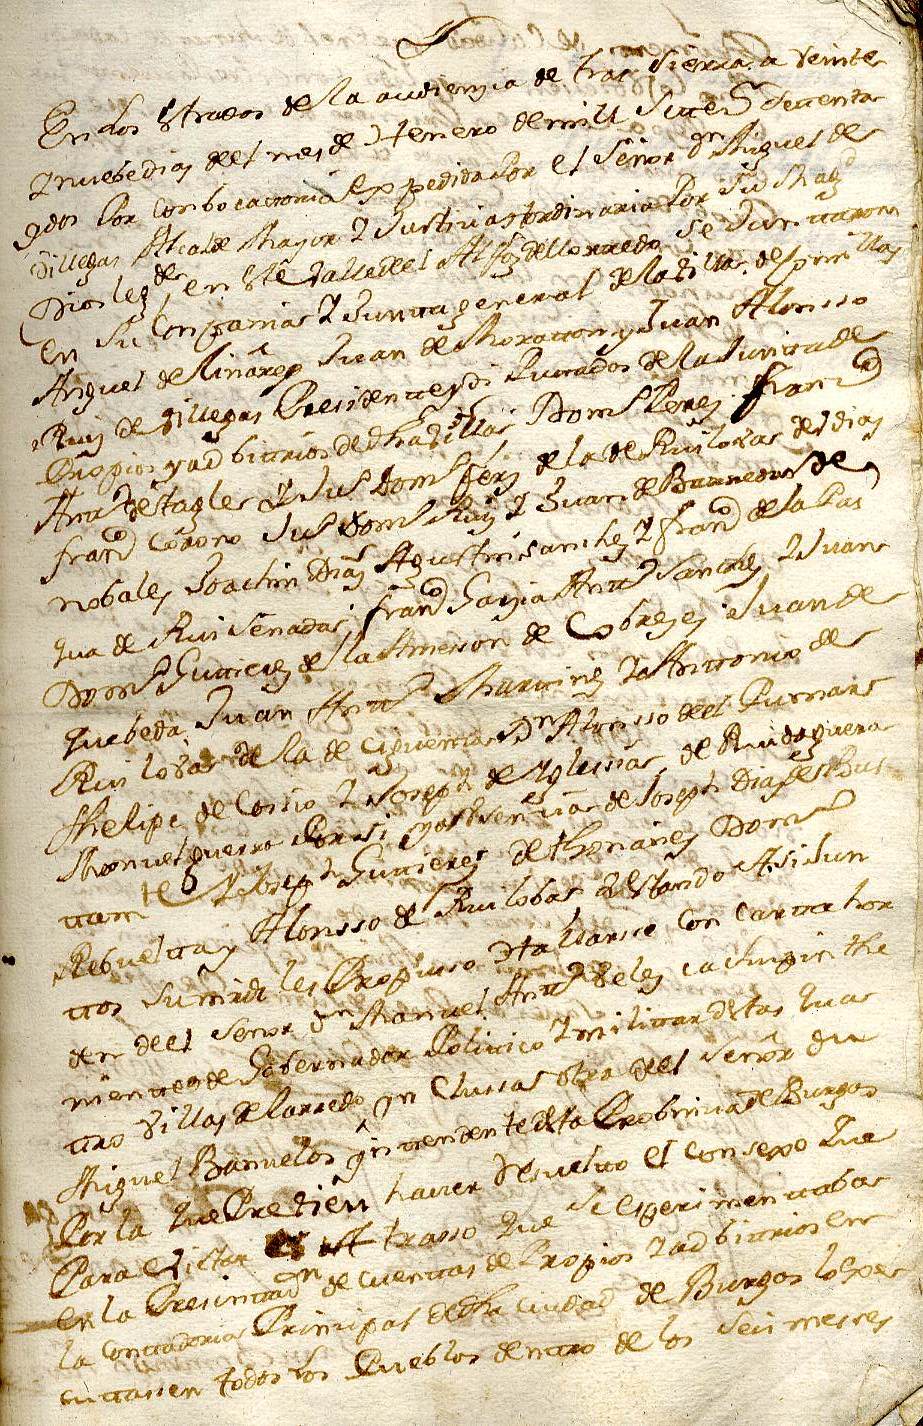 En los estrados de la audiencia de tras sierra a veinte
y nuebe dias del mes de henero de mill settes settenta
y dos Por conbocatoria expedida Por el señor dn Miguel de
Villegas Alcalde Mayor y Justicia hordinaria Por Su Magd
(Dios le gde) en este Valle del Alfoz de lloredo se Junttaron
en Su Conpania y Juntta general de la Villa de
Miguel de Linares Juan de Moratton y Juan Alonsso
Ruiz de Villegas Presidente y di Puttados de la Junttade
Propios y ad bittrios de dha Villa Domo Perez franco
Antto de tagle y Jus Domo frz de la de Ruilobas
franco Corono Jus Domo Ruiz y Juan de Barreda de
nobales Joachin Diaz Agusttin sanchez y franco de la Pas
qua de Ruiseñada franco Garzia Antto Sanchez y Juan
Domo Gutierrez de la de Cobrezes Juan de
quebeda Juan Antto Marttinez y Anttonio de
Ruiloba de la de ciguenza Dn Alonsso del Pumar
Phelipe de Cossio y Joseph de Yglesias de Rudaguera
Manuel guerra Por si y por ausencia de Joseph Diaz de Bus
ttamte y Joseph Guttierrez de thoñanes Domo
Rebueltta y Alonsso de Ruilobas y esttando Asi Jun
ttos Su mrd les Propusso hallarse con cartta hor
den del señor dn Manuel Antto the
nientte de Gobernador Politico y milittar desttas quas
tro Villas de Laredo yn Clussas otra del señor dn
Miguel Bañuelos ynttendente de esta Probincia de Burgos
Por la que Pretien haver Resuelto el Consexo que
Para evittar el atrasso que se esperimenttaba
en la Presenttan de Cuenttas de Propios y ad bittrios en
la Conttaduria Principal de dha ciudad de Burgos lo
cuttassen todos los Pueblos denttro de los seis messes